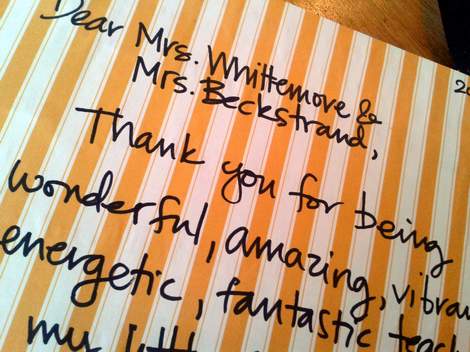 Dear Mrs. Whittemore &
Mrs. Beckstrand,
Thank you for being
wonderful, amazing,
energetic, fantastic
my